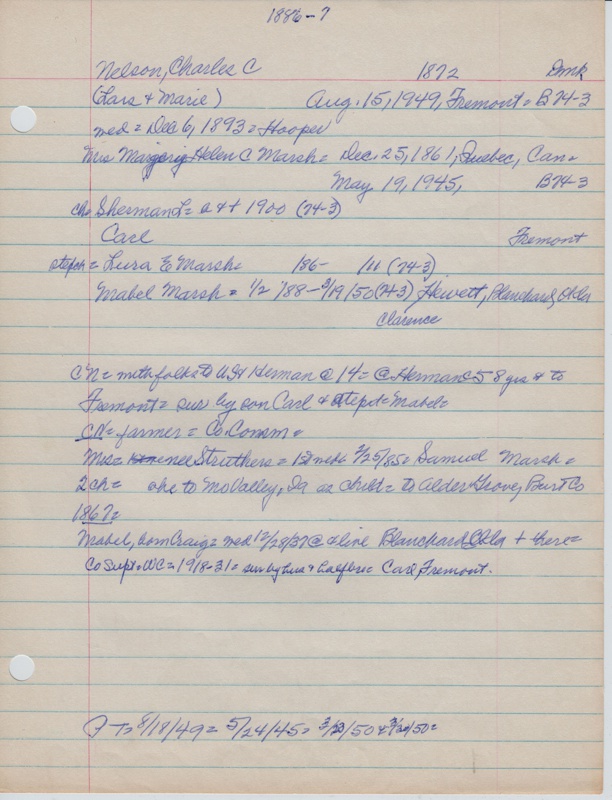 1886-7
Nelson, Charles C 1872 Dmk
(Lars + Marie) Aug. 15, 1949, Fremont = B74-3
med = Dec 6, 1893 = Hooper
Mrs Margorig Helen C Marsh = Dec. 25, 1861, Quebec, Can =
May 19, 1945, B74-3
ch = Sherman L = a 4t 1900 (74-3)
Carl Fremont
stepch = Lura E Marsh = 186- (74-3)
Mabel Marsh = 1/2 '88 - 3/19/50 (74-3) Hewett, Blanchard, Okla
Clarence
C N = with folks to US + Herman @ 14 = @ Herman 58 yrs + to
Fremont = sur by son Carl + stepd = Mabel =
CN = farmer = Co Comm =
Mrs = nee Struthers = 1st med = 2/25/85 = Samuel Marsh =
2 ch = she to Mo Valley, Ia as child = to Alder Grove, Burt Co
1867 =
Mabel, born Craig = med 12/28/37 @ + live Blanchard Okla + there =
Co Supt = WC = 1918-31 = sur by hus + halfbro = Carl, Fremont.
T = 8/18/49 = 5/24/45 = 3/20/50 + 3/20/50 =